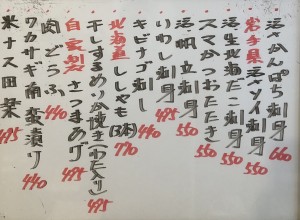 活かんぱち刺身 660
岩手県 活ソイ刺身 550
活生北海だこ刺身 550
スマかつおたたき 550
活帆立刺身 550
いわし刺身 495
キビナゴ刺し 440
北海道 ししゃも(3本) 770
干しするめいか焼き(わた入り) 495
自家製 さつまあげ 495
肉どうふ 440
ワカサギ南蛮漬け 440
米ナス田楽 495